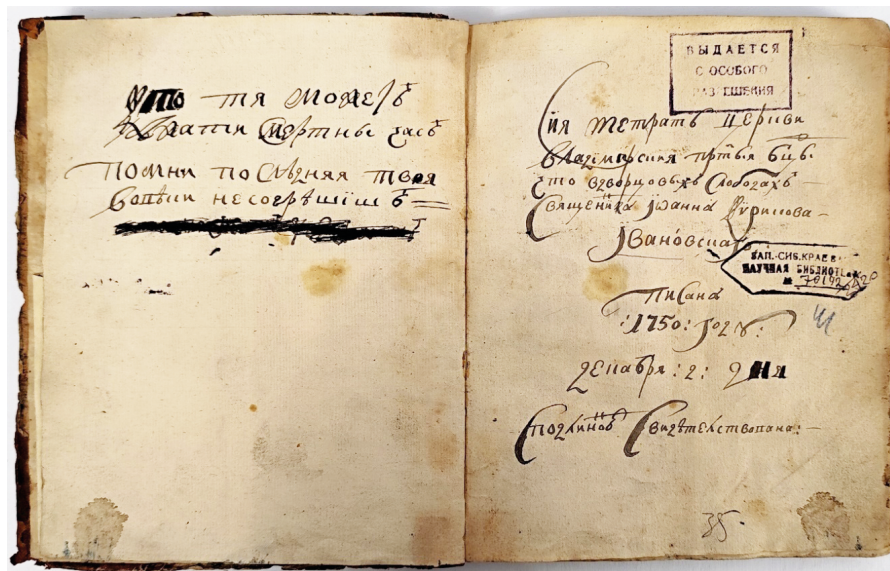 Что тя может
въ смертны час
Помни последняя твоя
вовеки несогрешiшъ
ВЫДАЕТСЯ
С ОСОБОГО
РАЗРЕШЕНИЯ
Сия тетрать церкви
владимирския прѣтыя бцы
что вдворцовыхъ слободахъ
Священика Иоанна Кирилова
Ивановскаго
ЗАП.-СИБ.КРАЕВ.
НАУЧНАЯ БИБЛИОТЕКА
№
Писана
:1750: году:
декабря :2: дня
Сподлинной Свидѣтелствована:
35.